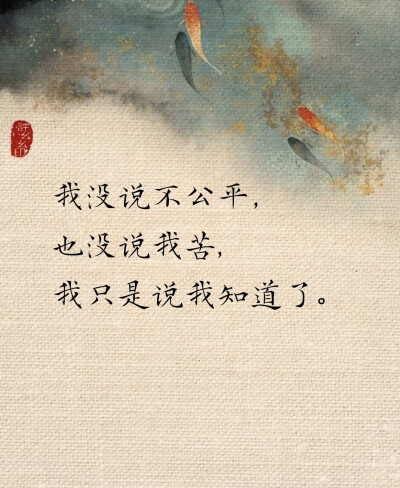 我没说不公平，
也没说我苦,
我只是说我知道了。